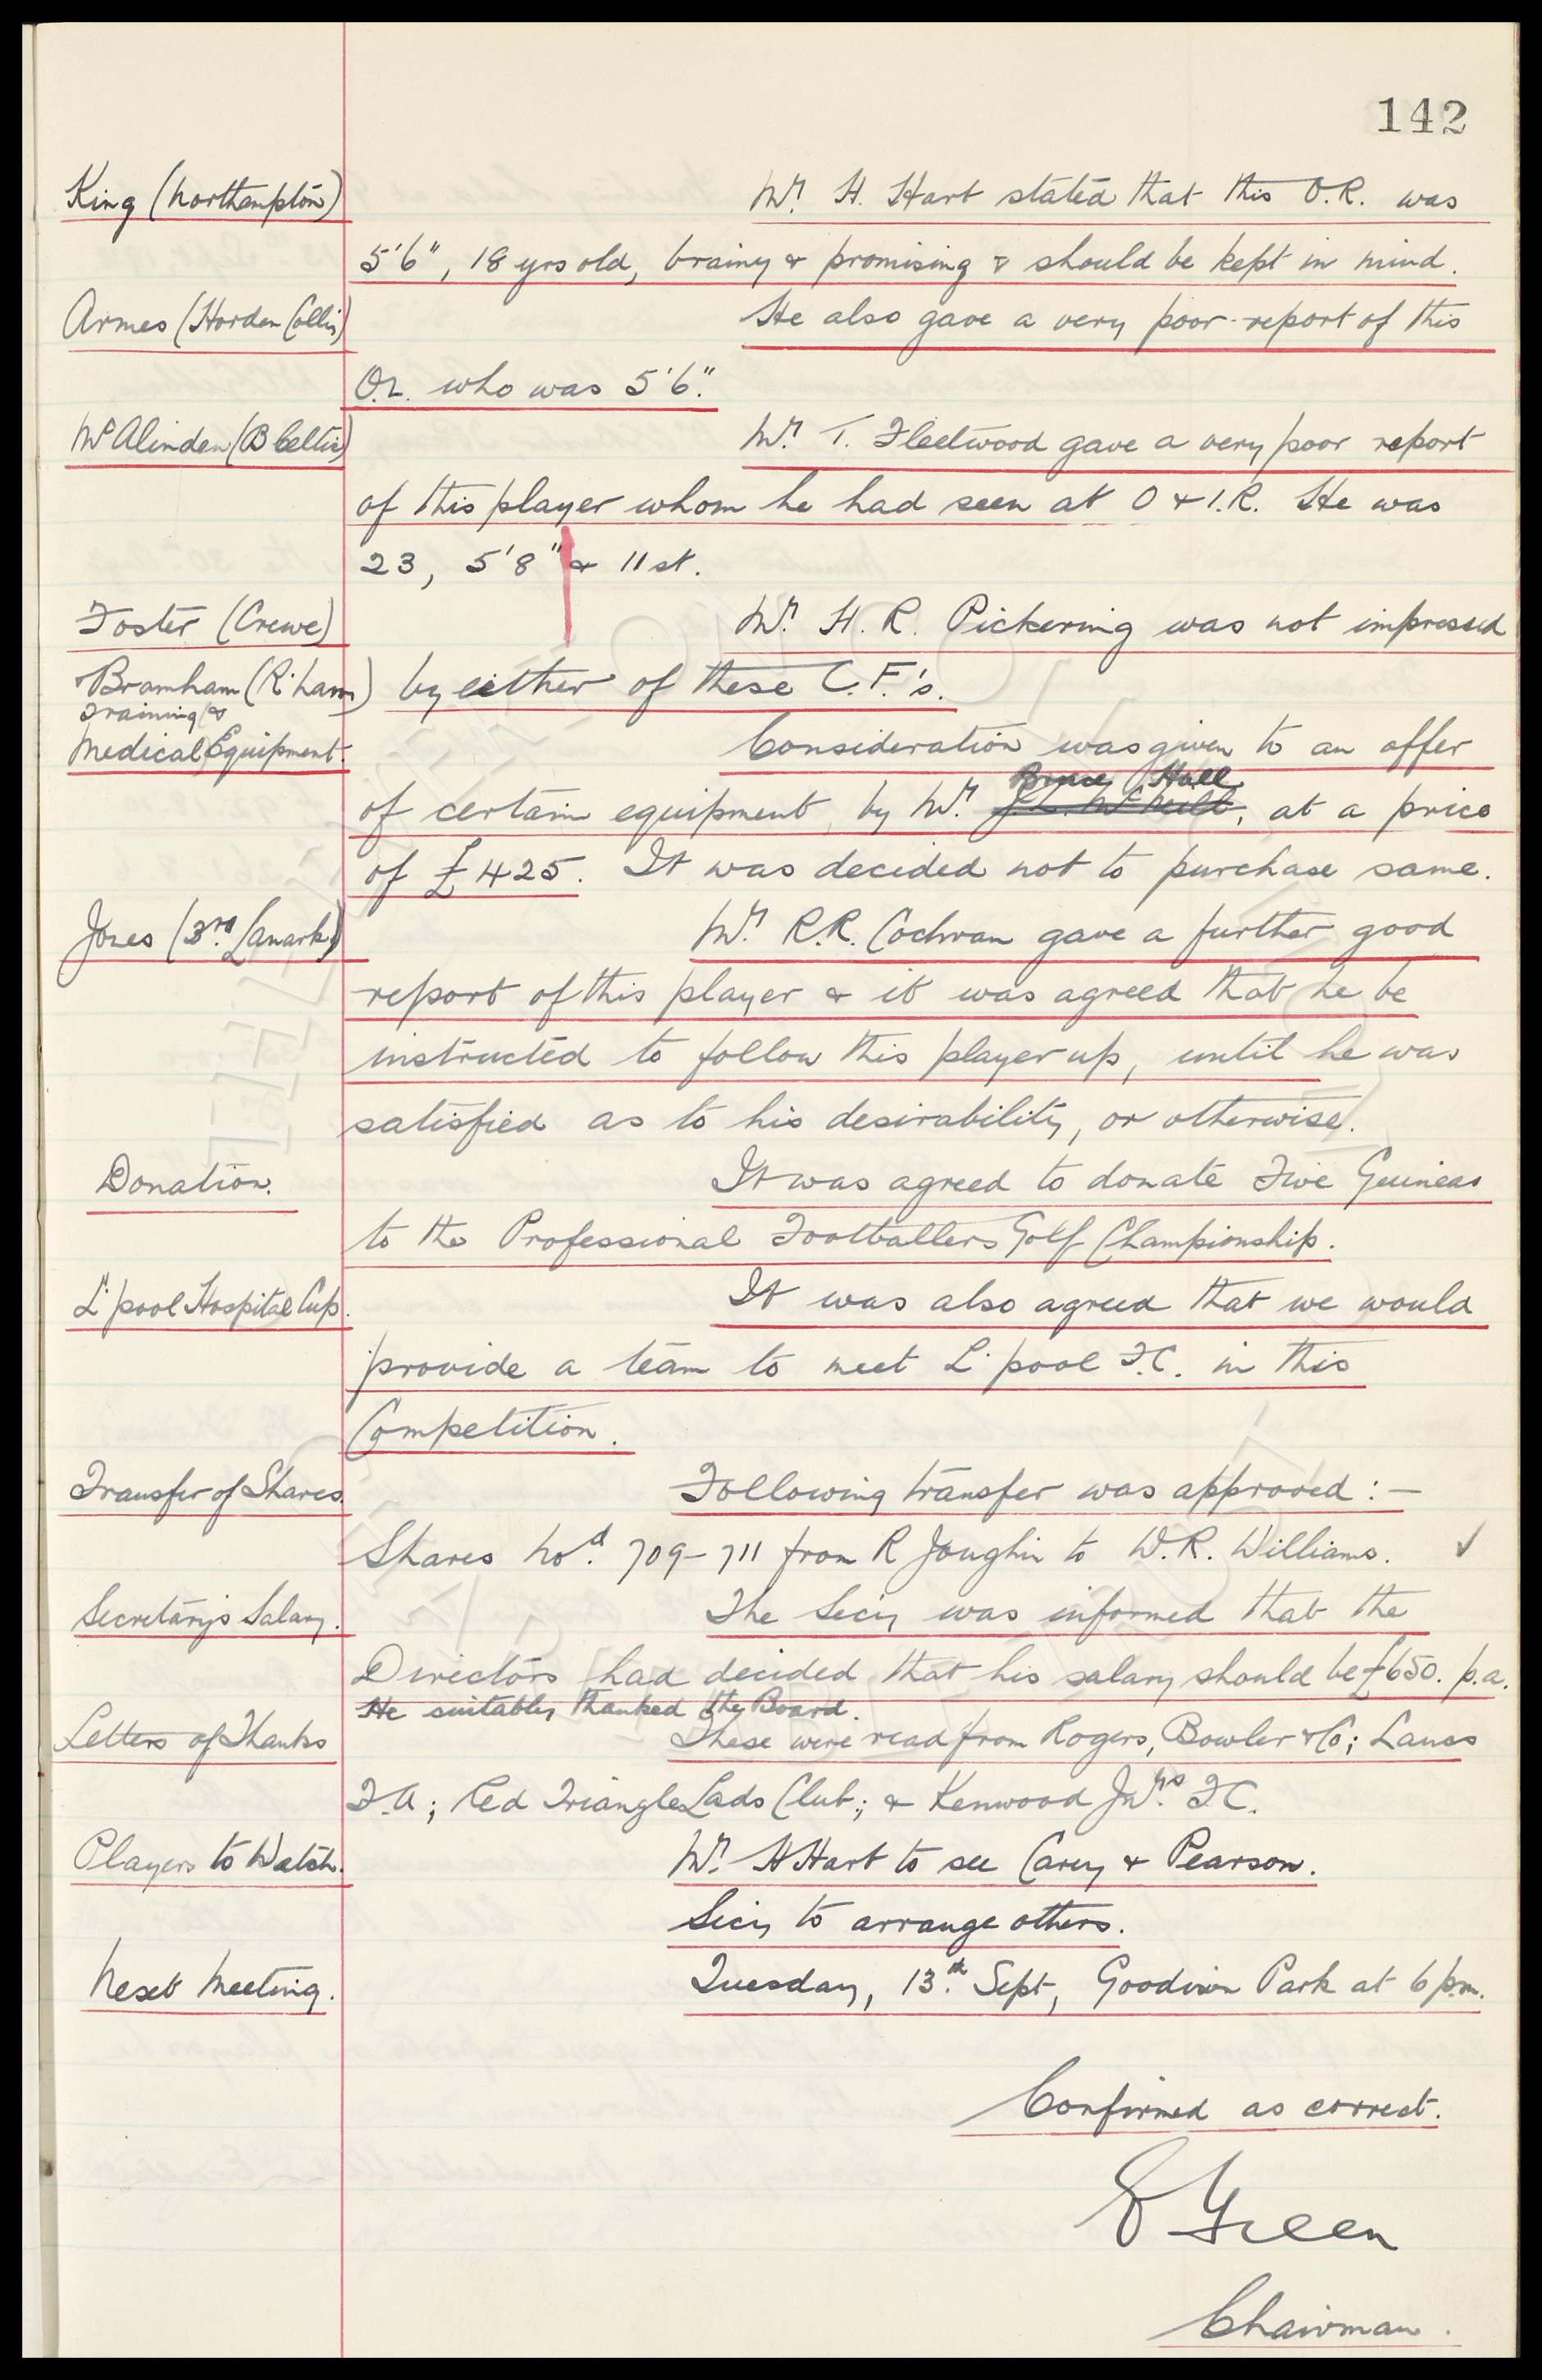 142
King (Northampton) Mr. H. Hart stated that this O.R. was
5'6", 18 yrs old, brainy & promising & should be kept in mind.
Armes (Horden Collis) He also gave a very poor report of this
O.L. who was 5'6".
McAlinden (B Celtic) Mr. T. Fleetwood gave a very poor report
of this player whom he had seen at O & I.R. He was
23, 5'8" & 11 st.
Foster (Crewe) Mr. H. R. Pickering was not impressed
Bramham (R'ham) by either of these C.F.'s.
Training &
Medical Equipment. Consideration was given to an offer
Hall
of certain equipment by Mr. at a price
of £425. It was decided not to purchase same.
Jones (3rd Lanark) Mr. R.R. Cochran gave a further good
report of this player & it was agreed that he be
instructed to follow this player up, until he was
satisfied as to his desirability, or otherwise.
Donation. It was agreed to donate Five Guineas
to the Professional Footballers Golf Championship.
L'pool Hospital Cup. It was also agreed that we would
provide a team to meet L'pool F.C. in this
Competition.
Transfer of Shares Following transfer was approved :-
Shares Nos. 709-711 from R Joughin to W.R. Williams. ✓
Secretary's Salary. The Secy was informed that the
Directors had decided that his salary should be £650. p.a.
He suitably thanked the Board.
Letters of Thanks These were read from Rogers, Bowler & Co; Lancs
F.A; Red Triangle Lads Club; & Kenwood Jnrs. F.C.
Players to Watch. Mr. H Hart to see Carey & Pearson.
Secy to arrange others.
Next Meeting. Tuesday, 13th Sept, Goodison Park at 6 p.m.
Confirmed as correct.
E Green
Chairman.